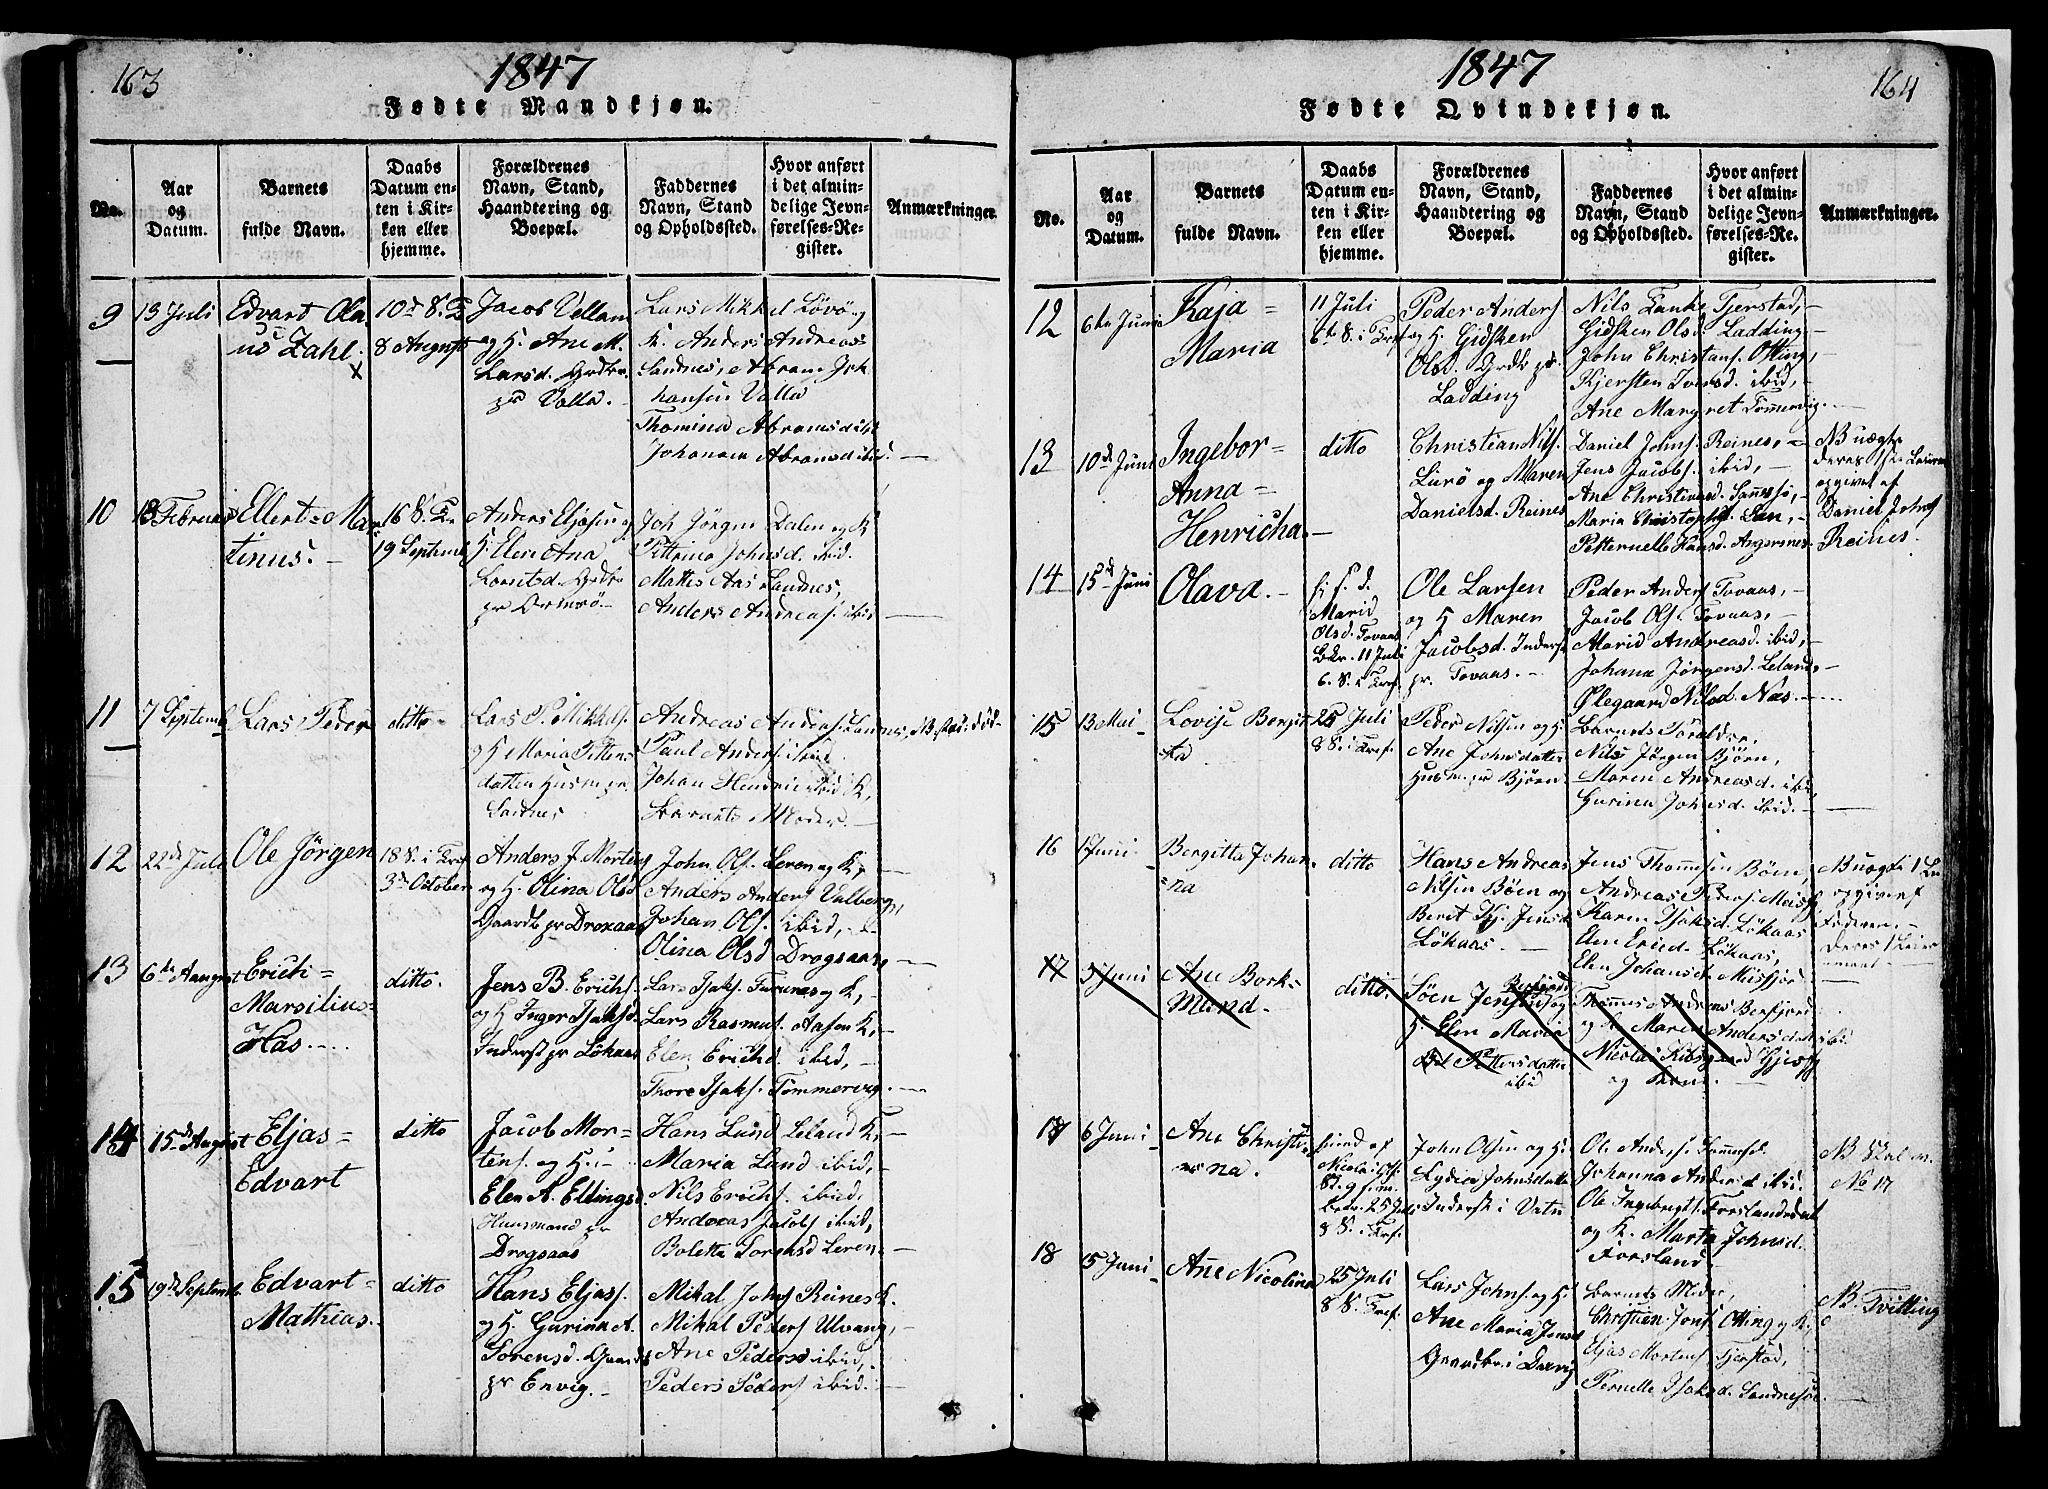 163
1847
Fødte Mandkjøn.
No.
Aar
og
Datum.
Barnets
fulde Navn.
Daabs
Datum en-
ten i Kir-
ken eller
hjemme.
Forældrenes
Navn, Stand,
Haandtering og
Boepæl.
Faddernes
Navn, Stand
og Opholdssted.
Hvor anført
i det almin-
delige Jevn-
førelses-Re-
gister.
Anmærkninger.
9
13 Juli
Edvart Ola
us Zahl.
10de S.
8 August
Jacob
og H. Ane M.
Larsd.
pr Valla.
Lars Mikkel Lövö og
K. Anders Andreas
Sandnes, Abram Joh
hansen Valla
Thomina Abramsd ibd
Johanna Abramsd ibid.
10
18 Februar
Ellert Mar
tinus.
16 S.
19 Septemb
Anders Eljasen og
H. Elen Ana
Lorntsd.
pr
Joh Jörgen Dalen og K
Pettrina Johnsd. ibid.
Mattis Aas Sandnes,
Anders Andreas. ibid
11
7 Septemb
Lars Peder
ditto
Lars P. Mikkels.
og H Maria Petters
datter Husm pr
Sandnes
Andreas Anders. Sannes,
Paul Anders. ibid
Johan Hendric ibid K,
Barnets Moder.
12
22de Juli
Ole Jörgen
18 S. i Tref
3de October
Anders J. Mortens
og H. Olina Olsd
Gaardb pr Droxaas
John Ols. Leren og K,
Anders Anders Valberg,
Johan Ols. ibid,
Olina Olsd Drogsaas,
13
6te August
Erich
Marsilius
Has.
ditto.
Jens B. Erichs.
og H Inger Isaksd.
Inderst pr Lökaas
Lars Isaks. Furunes og K,
Lars Rasmus. Aasen K,
Elen Erichd. ibid,
Thore Isaks. Tömmervig.
14
15de August
Eljas
Edvart
ditto
Jacob Mor-
tens. og H.
Elen A. Ellingsd
Huusmand pr
Drogsaas
Hans Lund Leland K,
Maria Lund ibid,
Nils Erichs. ibid,
Andreas Jacobs ibid,
Boletta Torensd Leren
15
19de Septemb.
Edvart
Mathias.
ditto
Hans Eljas.
og H. Gurina A.
Sorensd. Gaardb
pr Envig.
Mikal Johns Reines K.
Mikal Peders Ulvang,
Ane Pedersd ibid,
Peders Peders ibid.
1847
164
Fødte Qvindekjøn.
No.
Aar
og
Datum.
Barnets
fulde Navn.
Daabs
Datum en-
ten i Kir-
ken eller
hjemme.
Forældrenes
Navn, Stand,
Haandtering og
Boepæl.
Faddernes
Navn, Stand
og Opholdssted.
Hvor anført
i det almin-
delige Jevn-
førelses-Re-
gister.
Anmærkninger.
12
6te Juni
Kaja
Maria
11 Juli
6te S. i Tref
Peder Anders
og H. Gidsken
Olsd. Grdb pr.
Ladding
Nils Tjerstad,
Gidsken Olsd. Ladding
John Christians. Otting,
Kjersten Iversd. ibid,
Ane Margret Tömmervig.
13
10de Juni
Ingebor
Anna
Henricha.
ditto
Christian Nils.
Lurö og Maren
Danielsd. Reines
Daniel Johns. Reines,
Jens Jacobs. ibid,
Ane Christinasd. Sannesö,
Maria Christophd.
Petternelle Hansd. Angersnes
NB uægte
deres 1ste Leierm
opgivet af
Daniel Johns
Reines.
14
15de Juni
Olava.
hj. d.
Marid
Olsd. Tovaas
Bkr. 11 Juli
6. S. i Tref.
Ole Larsen
og H Maren
Jacobsd. Inders
pr. Tovaas.
Peder Anders Tovaas,
Jacob Ols. Tovaas,
Marid Andreasd. ibid,
Johana Jörgensd. Leland,
Ølegaard Nilsd. Næs.
15
13 Mai
Lovise Bergit
ta
25 Juli
8 S. i Tref.
Peder Nilsen og H
Ane Johnsdatter
Husm. pr Bjørn
Barnets Forældre,
Nils Jørgen Bjørn,
Maren Andreasd. ibid,
Gurina Johnsd. ibid.
16
1 Juni
Bergitta Johan
na
ditto
Hans Andreas
Nilsen Böen og
Berit Jensd
Lökaas
Jens Thommesen Böen,
Andreas Peders. Meisfj
Karen Isaksd. Lökaas
Elen Ericd. Lökaas,
Elen Johansd. Meisfjor
NB uægte 1 Le
opgiver
Faderen,
Deres 1 Leier
maal
17
5 Juni
Ane Bork
Mand.
ditto
Sören Jensen og
H. Elen Maria
Pettersdatter
ibid
Thomas Andreas Berfjord
og K. Maren Andersd. ibi
Nicolai Gjesfj
og Kone.
17
6 Juni
Ane Christi
na.
Nicolai Ols.
Bekr. 25 Juli
8 S. i Tref.
John Olsen og H.
Lydia Johnsdatter
Inderst i Vatn
Ole Anders.
Johanna Andersd ibid.
Ole Ingebregts. Forslandsdal
og K. Marta Johnsd.
Forsland.
NB Skal v.
No 17
18
15 Juni
Ane Nicolina
25 Juli
8 S. Tref.
Lars Johns. og H.
Ane Maria Jensd
Gaardbr. i
Barnets Moder,
Christen Jons Otting og K,
Eljas Mortens Tjerstad,
Pernille Isaksd. Sandnesö.
NB. Tvilling